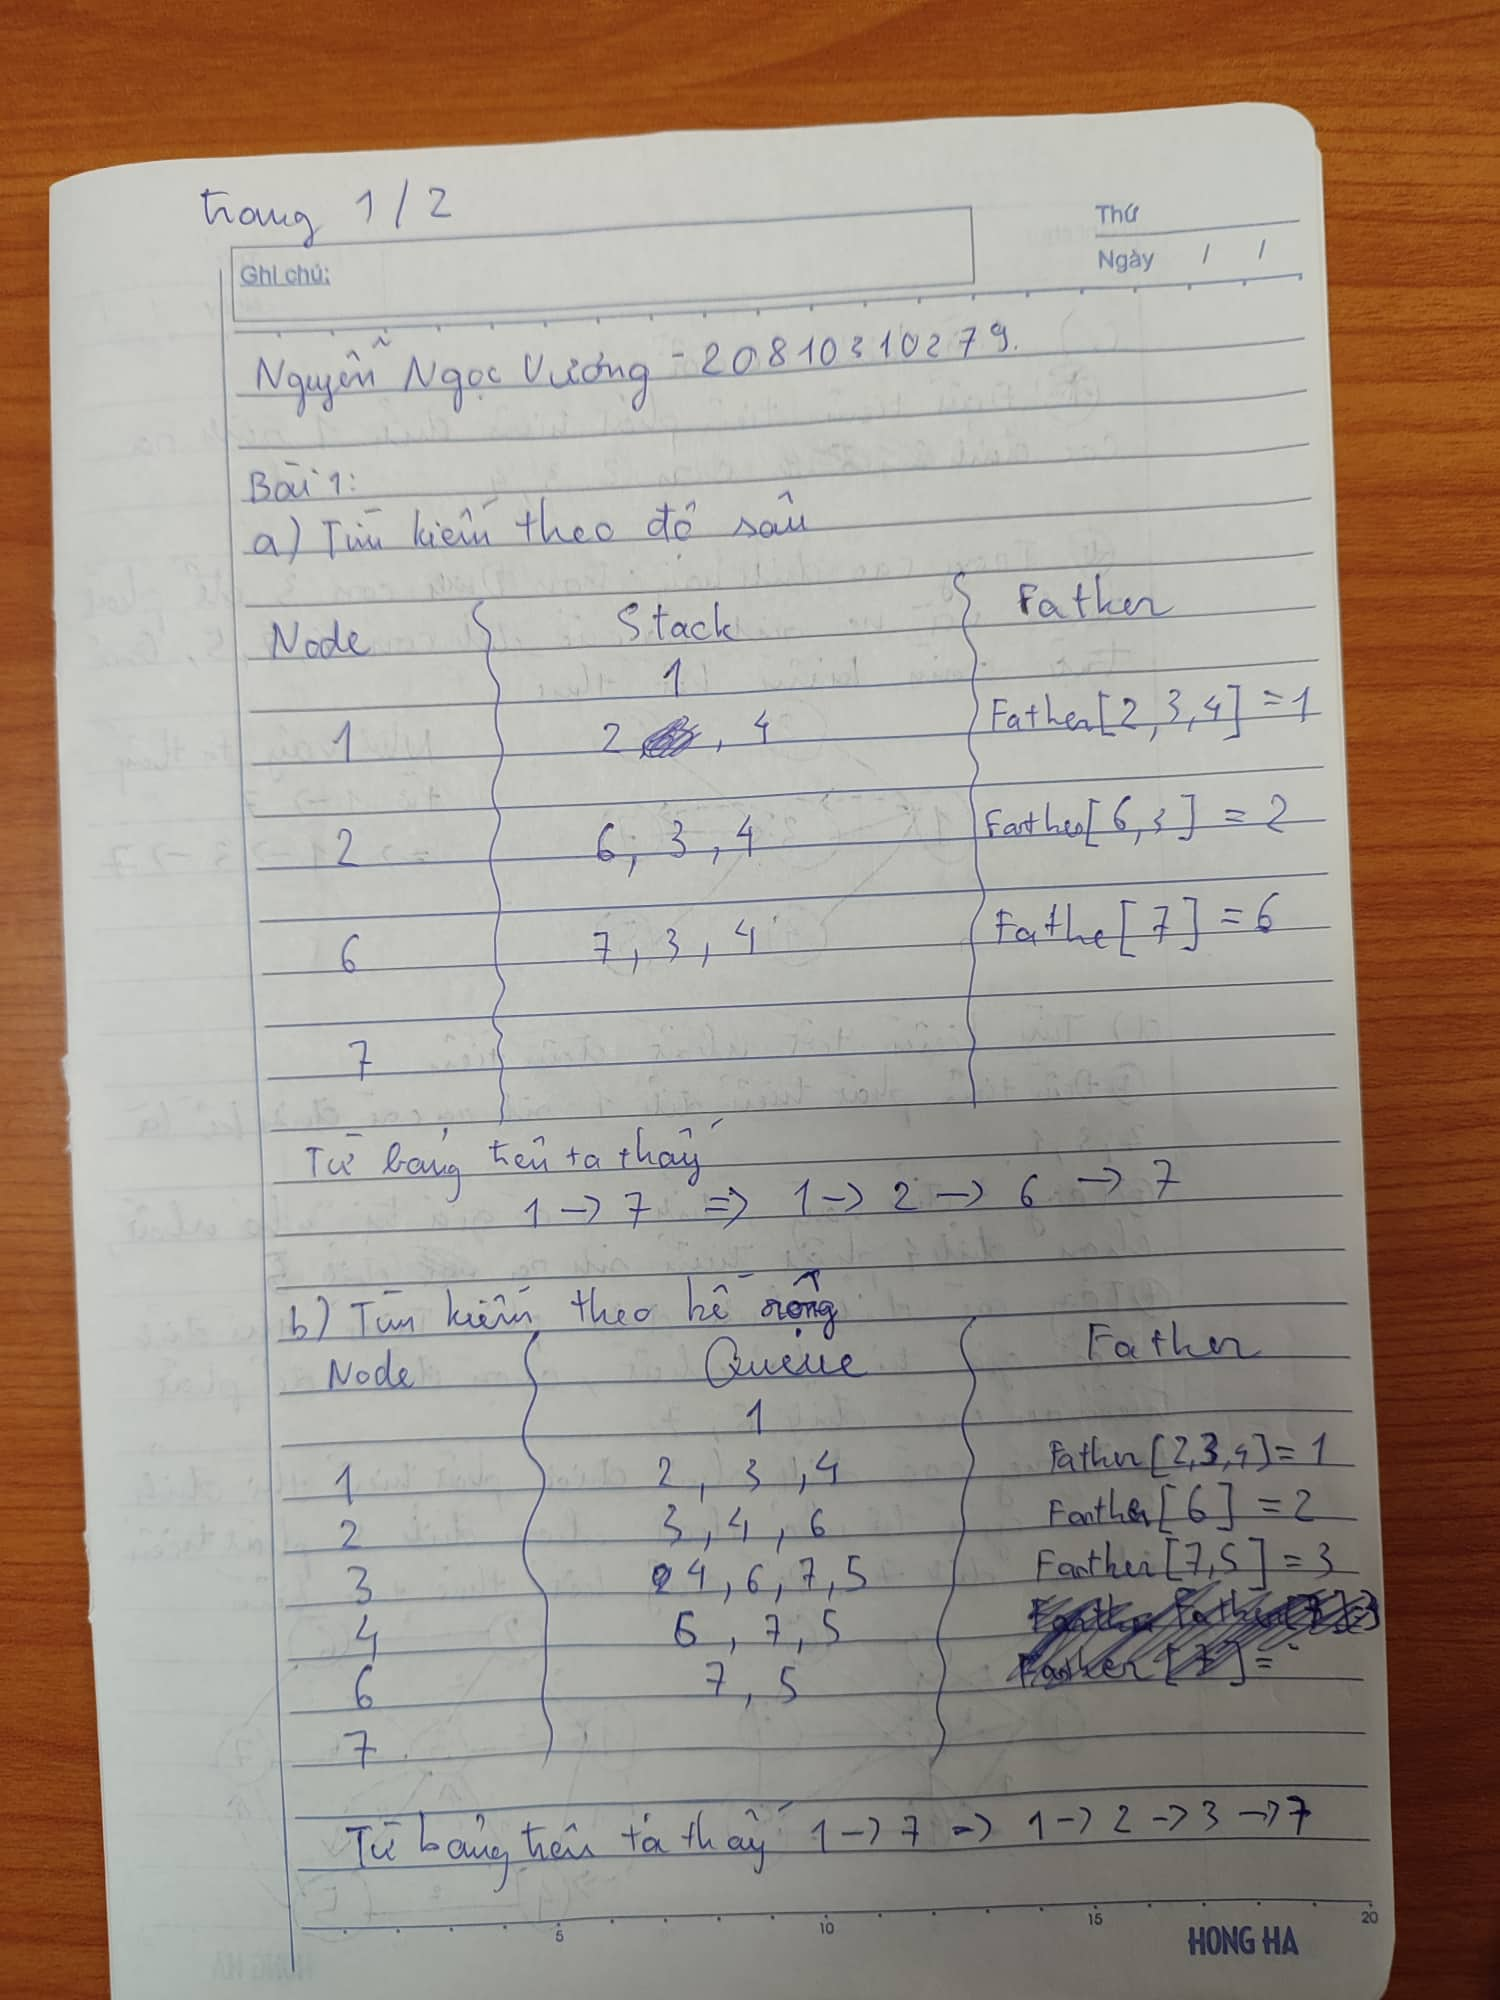 trang 1/2
Thứ
Ghi chú:
Ngày / /
Nguyễn Ngọc Vương - 20810310279.
Bài 1:
a) Tìm kiếm theo độ sâu
Node Stack Father
1
1 2 , 4 Father[2,3,4] = 1
2 6, 3, 4 Father[6,3] = 2
6 7, 3, 4 Fathe[7] = 6
7
Từ bảng trên ta thấy
1 -> 7 => 1 -> 2 -> 6 -> 7
b) Tìm kiếm theo bề rộng
Node Queue Father
1
1 2, 3, 4 Father[2,3,4] = 1
2 3, 4, 6 Father[6] = 2
3 4, 6, 7, 5 Father[7,5] = 3
4 6, 7, 5
6 7, 5 Father [7] =
7
Từ bảng trên ta thấy 1 -> 7 => 1 -> 2 -> 3 -> 7
5 10 15 20
HONG HA